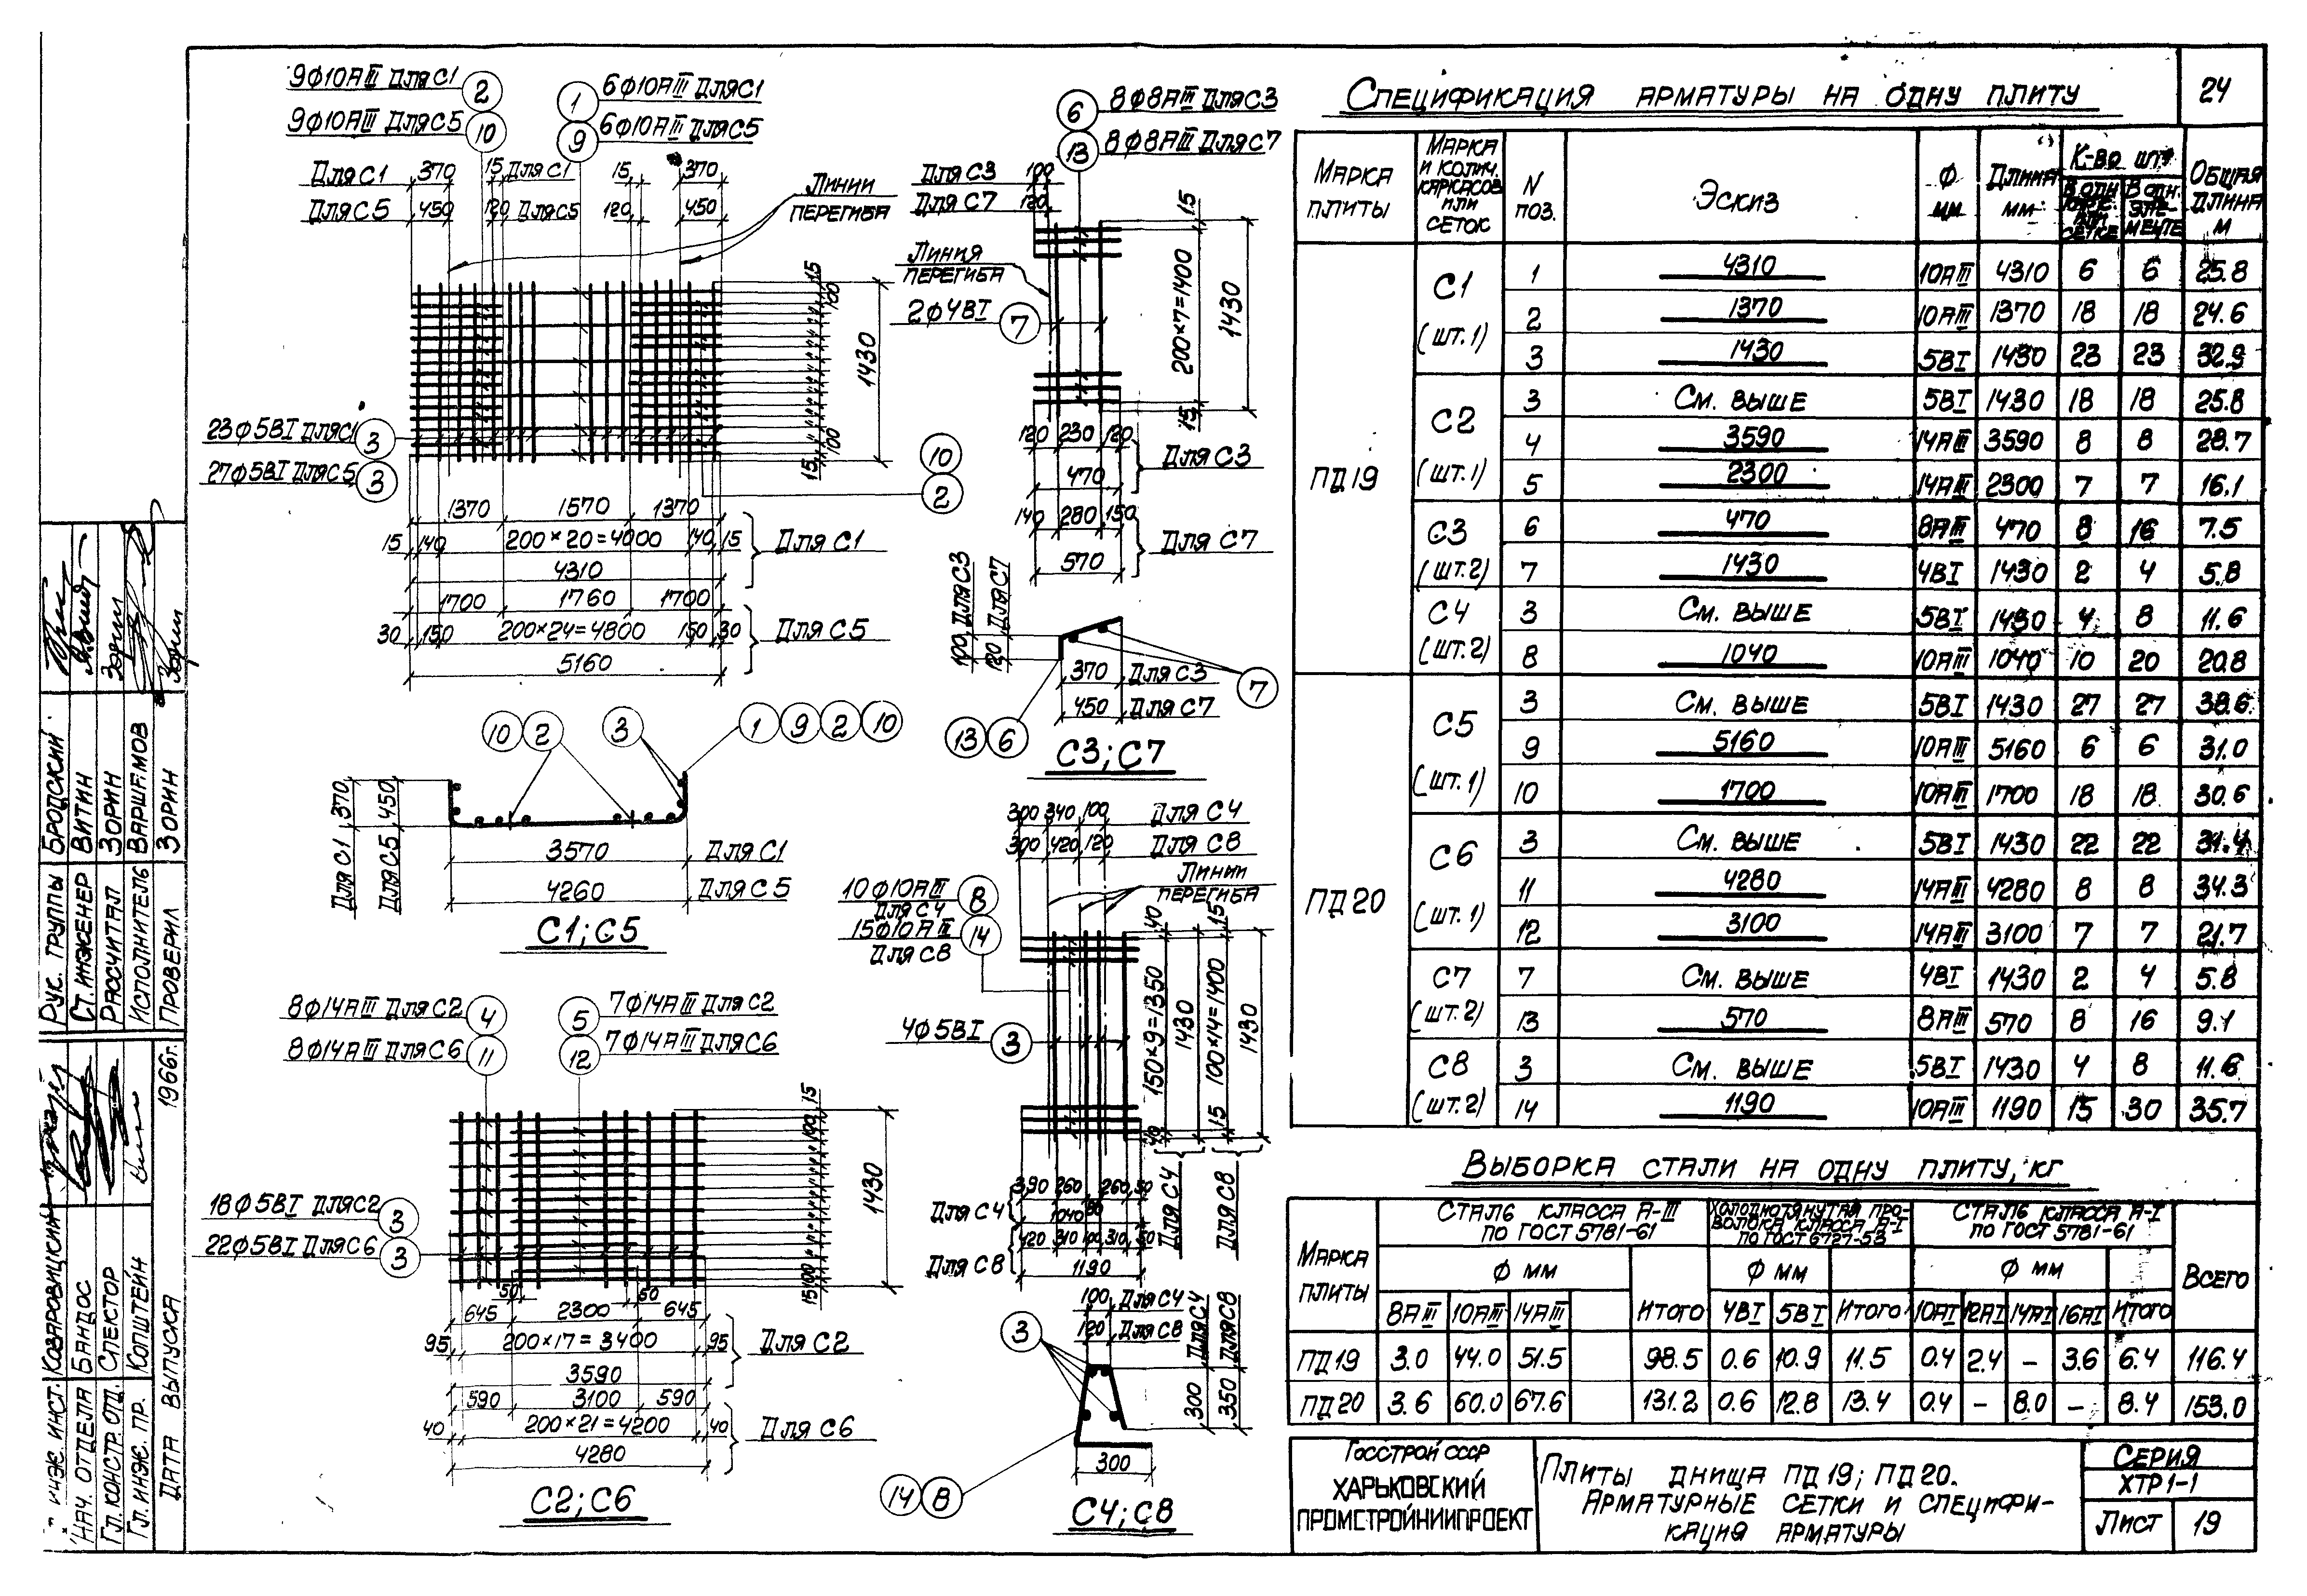 24
Спецификация арматуры на одну плиту
Марка плиты | Марка и колич. каркасов или сеток | N поз. | Эскиз | Ф мм | Длина мм | К-во шт. | В одн. карк. или сетке | В одн. элементе | Общая длина м
ПД19
С1 (шт.1)
1 4310 10АIII 4310 6 6 25.8
2 1370 10АIII 1370 18 18 24.6
3 1430 5ВI 1430 23 23 32.9
С2 (шт.1)
3 См. выше 5ВI 1430 18 18 25.8
4 3590 14АIII 3590 8 8 28.7
5 2300 14АIII 2300 7 7 16.1
С3 (шт.2)
6 470 8АIII 470 8 16 7.5
7 1430 4ВI 1430 2 4 5.8
С4 (шт.2)
3 См. выше 5ВI 1430 4 8 11.6
8 1040 10АIII 1040 10 20 20.8
ПД20
С5 (шт.1)
3 См. выше 5ВI 1430 27 27 38.6
9 5160 10АIII 5160 6 6 31.0
10 1700 10АIII 1700 18 18 30.6
С6 (шт.1)
3 См. выше 5ВI 1430 22 22 31.4
11 4280 14АIII 4280 8 8 34.3
12 3100 14АIII 3100 7 7 21.7
С7 (шт.2)
7 См. выше 4ВI 1430 2 4 5.8
13 570 8АIII 570 8 16 9.1
С8 (шт.2)
3 См. выше 5ВI 1430 4 8 11.6
14 1190 10АIII 1190 15 30 35.7
Выборка стали на одну плиту, кг
Марка плиты
Сталь класса А-III по ГОСТ 5781-61
Холоднотянутая проволока класса В-I по ГОСТ 6727-53
Сталь класса А-I по ГОСТ 5781-61
Всего
Ф мм Ф мм Ф мм
8АIII 10АIII 14АIII Итого 4ВI 5ВI Итого 10АI 12АI 14АI 16АI Итого
ПД19 3.0 44.0 51.5 98.5 0.6 10.9 11.5 0.4 2.4 – 3.6 6.4 116.4
ПД20 3.6 60.0 67.6 131.2 0.6 12.8 13.4 0.4 – 8.0 – 8.4 153.0
Госстрой СССР
ХАРЬКОВСКИЙ
ПРОМСТРОЙНИИПРОЕКТ
Плиты днища ПД19; ПД20.
Арматурные сетки и специфи-
кация арматуры
Серия
ХТР1-1
Лист 19
9Ф10АIII для С1 2
9Ф10АIII для С5 10
1 6Ф10АIII для С1
9 6Ф10АIII для С5
Для С1 370 15 для С1 15 370
Для С5 450 120 для С5 120 450
Линии перегиба
15 100
1430
100 15
23Ф5ВI для С1 3
27Ф5ВI для С5 3
10
2
1370 1570 1370
15 140 200×20=4000 140 15
4310
Для С1
1700 1760 1700
30 150 200×24=4800 150 30
5160
Для С5
10 2 3 1 9 2 10
Для С1 370
Для С5 450
3570 Для С1
4260 Для С5
С1; С5
8Ф14АIII для С2 4
8Ф14АIII для С6 11
5 7Ф14АIII для С2
12 7Ф14АIII для С6
15 100
1430
100 15
18Ф5ВI для С2 3
22Ф5ВI для С6 3
50 50
645 2300 645
95 200×17=3400 95
3590
Для С2
590 3100 590
40 200×21=4200 40
4280
Для С6
С2; С6
6 8Ф8АIII для С3
13 8Ф8АIII для С7
Для С3 100
Для С7 120
Линия перегиба
2Ф4ВI 7
15
200×7=1400
15
1430
120 230 120
470
Для С3
140 280 150
570
Для С7
100 для С3
120 для С7
370 Для С3
450 Для С7
7
13 6
С3; С7
300 340 100 Для С4
300 420 120 Для С8
Линии перегиба
10Ф10АIII для С4 8
15Ф10АIII для С8 14
4Ф5ВI 3
40 150×9=1350 40
1430
Для С4
15 100×14=1400 15
1430
Для С8
Для С4 390 260 260 50
1040
Для С8 420 310 100 310 50
1190
100 Для С4
120 Для С8
3
300 Для С4
350 Для С8
300
14 8
С4; С8
Рук. группы Бродский
Ст. инженер Витин
Рассчитал Зорин
Исполнитель
Проверил Зорин
Нач. отдела Бандос
Гл. констр. отд. Спектор
Гл. инж. пр. Копштейн
Дата выпуска 1966г.